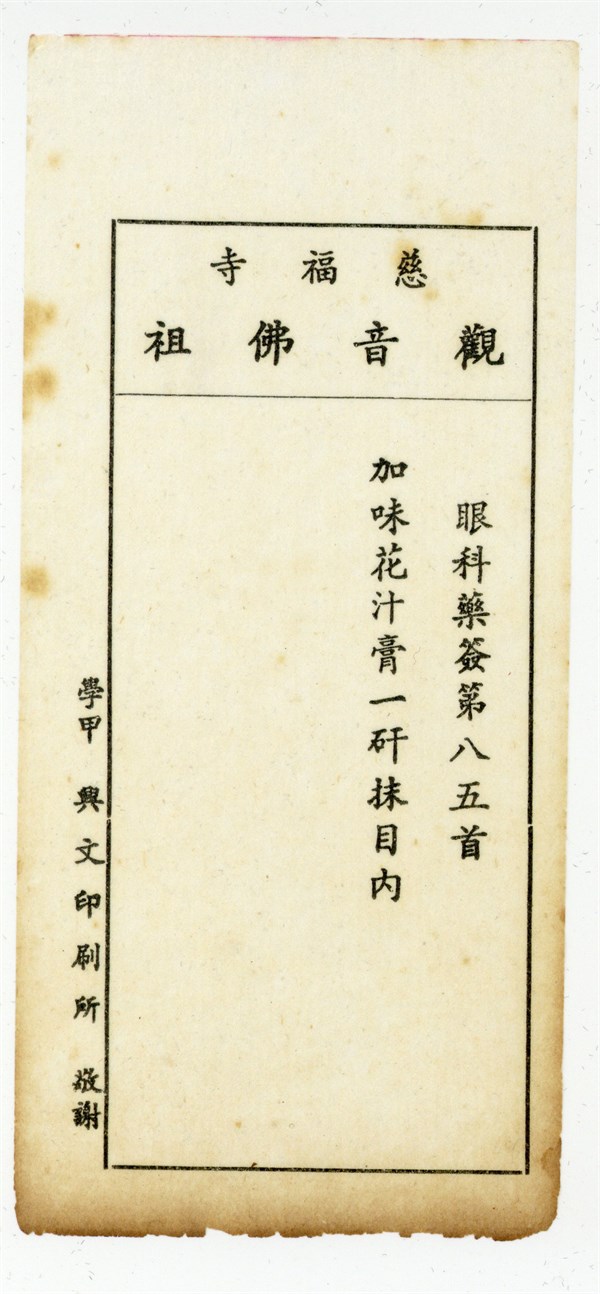 慈福寺
觀音佛祖
眼科藥簽第八五首
加味花汁膏一矸抹目內
學甲 興文印刷所 敬謝